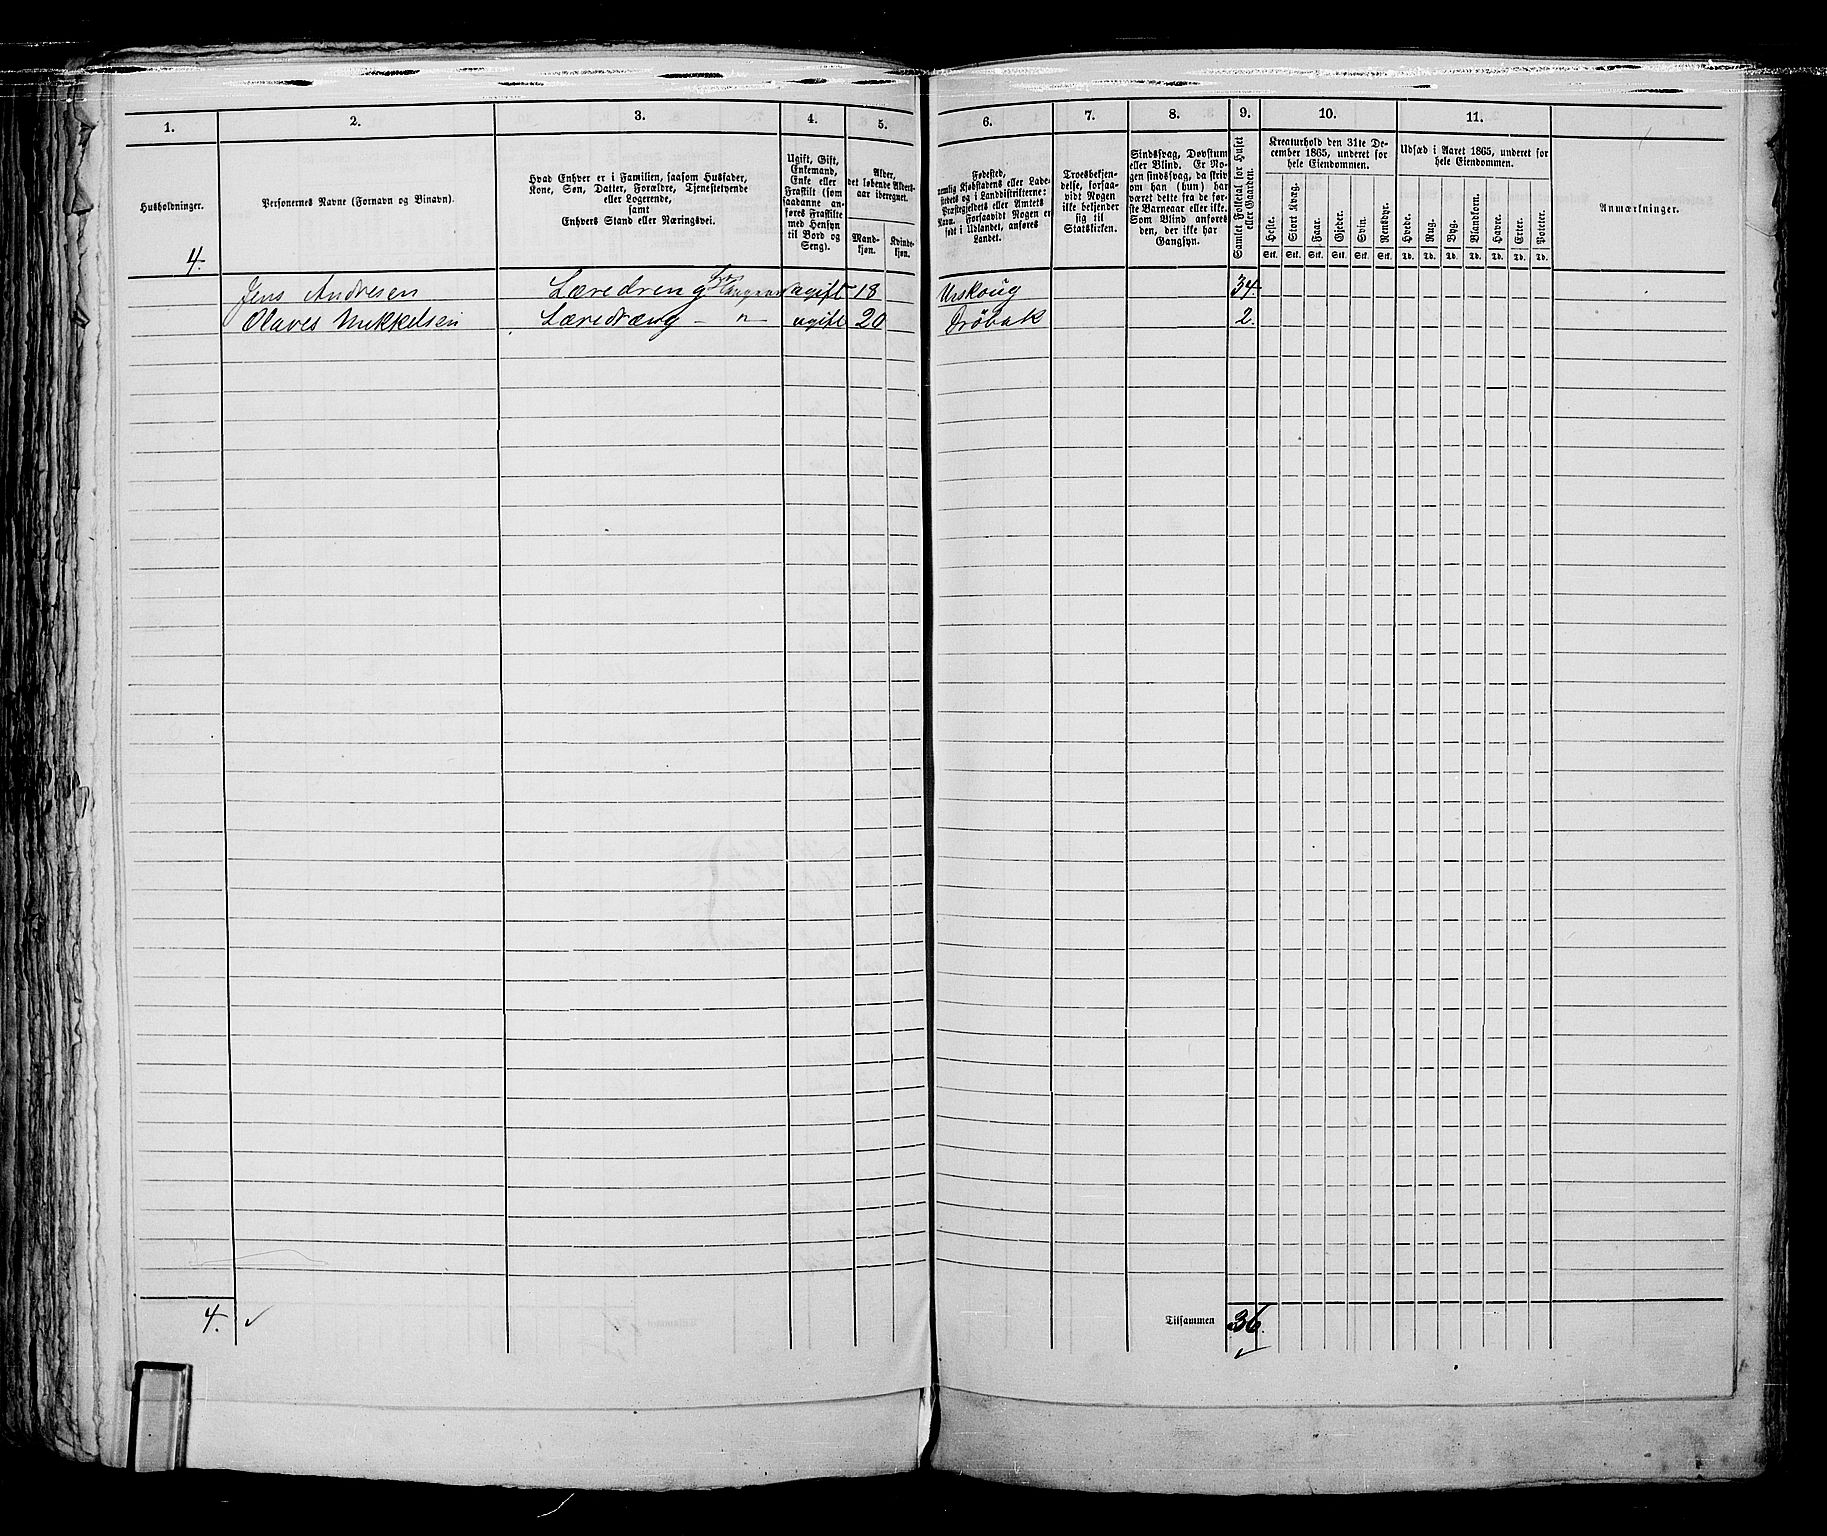 1. 2. 3. 4. 5. 6. 7. 8. 9. 10. 11.
Husholdninger.
Personernes Navne (Fornavn og Binavn).
Hvad Enhver er i Familien, saasom Husfader,
Kone, Søn, Datter, Forældre, Tjenestetyende
eller Logerende,
samt
Enhvers Stand eller Næringsvei.
Ugift, Gift,
Enkemand,
Enke eller
Fraskilt (som
saadanne an-
føres Fraskilte
med Hensyn
til Bord og
Seng).
Alder,
det løbende Alders-
aar iberegnet.
Mand-
kjøn.
Kvinde-
kjøn.
Fødested,
nemlig Kjøbstadens eller Lade-
stedets og i Landdistrikterne:
Præstegjeldets eller Amtets
Navn. Forsaavidt Nogen er
født i Udlandet, anføres
Landet.
Troesbekjen-
delse, forsaa-
vidt Nogen
ikke bekjender
sig til
Statskirken.
Sindssvag, Døvstum
eller Blind. Er No-
gen sindssvag, da skriv
om han (hun) har
været dette fra de før-
ste Barneaar eller ikke.
Som Blind anføres
den, der ikke har
Gangsyn.
Samlet Folketal for Huset
eller Gaarden.
Kreaturhold den 31te De-
cember 1865, underet for
hele Eiendommen.
Heste. Stort Kvæg. Faar. Gjeder. Svin. Rensdyr.
Stk. Stk. Stk. Stk. Stk. Stk.
Udsæd i Aaret 1865, underet for
hele Eiendommen.
Hvede. Rug. Byg. Blandkorn. Havre. Erter. Poteter.
Td. Td. Td. Td. Td. Td. Td.
Anmærkninger.
4.
Jens Andresen Læredreng hos ugift 18 Urskoug 34.
Olaves Mikkelsen Læredræng - " - ugift 20 Drøbak 2.
4. ✓ Tilsammen 36.
✓